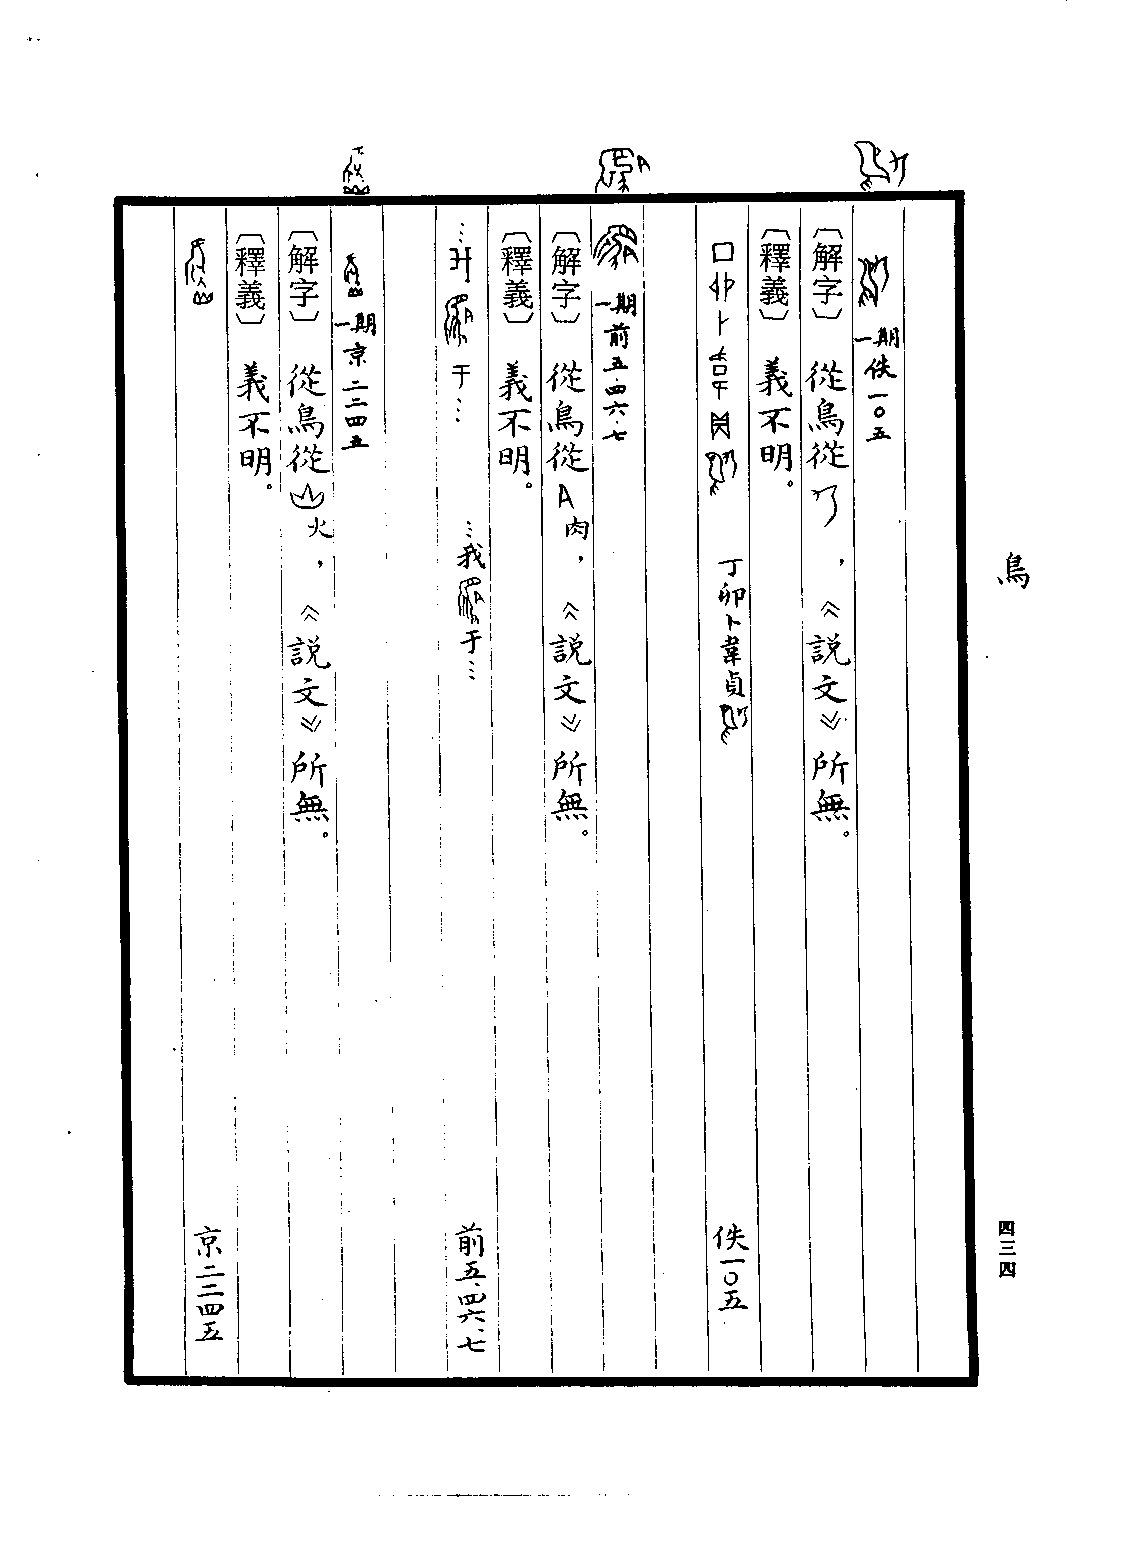 鳥
一期佚一〇五
〔解字〕從鳥從，《説文》所無。
〔釋義〕義不明。
丁卯卜韋貞 佚一〇五
一期前五·四六·七
〔解字〕從鳥從肉，《説文》所無。
〔釋義〕義不明。
…于… …我于… 前五·四六·七
一期京二二四五
〔解字〕從鳥從火，《説文》所無。
〔釋義〕義不明。
京二二四五
四三四